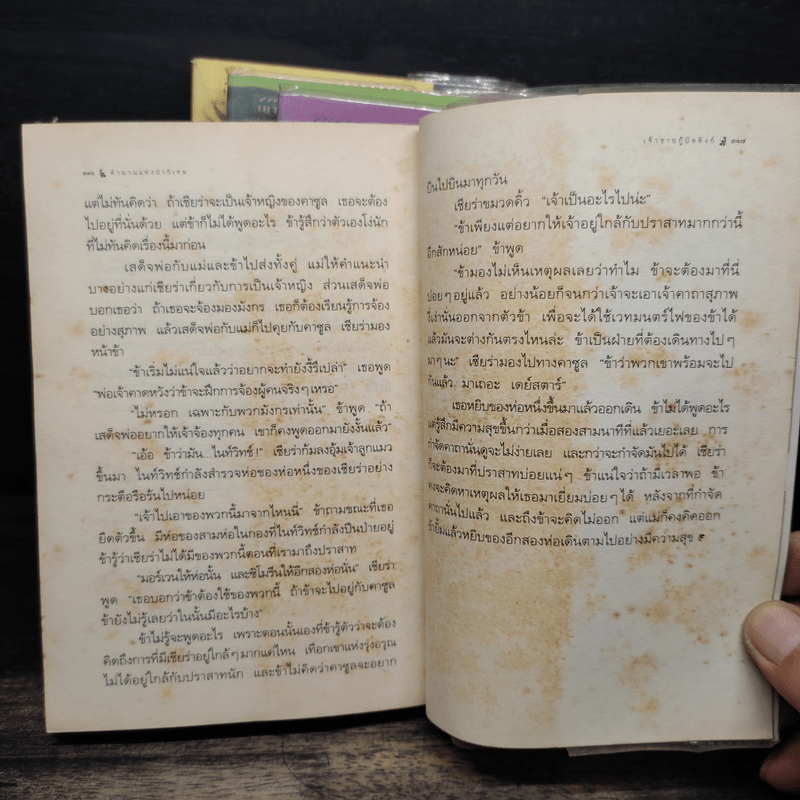 ๓๑๖ ตำนานแห่งป่าวิเศษ
แต่ไม่ทันคิดว่า ถ้าเชียร่าจะเป็นเจ้าหญิงของคาซูล เธอจะต้อง
ไปอยู่ที่นั่นด้วย แต่ข้าก็ไม่ได้พูดอะไร ข้ารู้สึกว่าตัวเองโง่นัก
ที่ไม่ทันคิดเรื่องนี้มาก่อน
เสด็จพ่อกับแม่และข้าไปส่งทั้งคู่ แม่ให้คำแนะนำ
บางอย่างแก่เชียร่าเกี่ยวกับการเป็นเจ้าหญิง ส่วนเสด็จพ่อ
บอกเธอว่า ถ้าเธอจะจ้องมองมังกร เธอก็ต้องเรียนรู้การจ้อง
อย่างสุภาพ แล้วเสด็จพ่อกับแม่ก็ไปคุยกับคาซูล เชียร่ามอง
หน้าข้า
“ข้าเริ่มไม่แน่ใจแล้วว่าอยากจะทำยังงี้รึเปล่า” เธอพูด
“พ่อเจ้าคาดหวังว่าข้าจะฝึกการจ้องผู้คนจริงๆเหรอ”
“ไม่หรอก เฉพาะกับพวกมังกรเท่านั้น” ข้าพูด “ถ้า
เสด็จพ่ออยากให้เจ้าจ้องทุกคน เขาก็คงพูดออกมายังงั้นแล้ว”
“เอ้อ ข้าว่ามัน...ไนท์วิทช์!” เชียร่าก้มลงอุ้มเจ้าลูกแมว
ขึ้นมา ไนท์วิทช์กำลังสำรวจห่อของห่อหนึ่งของเชียร่าอย่าง
กระตือรือร้นไปหน่อย
“เจ้าไปเอาของพวกนี้มาจากไหนนี่” ข้าถามขณะที่เธอ
ยืดตัวขึ้น มีห่อของสามห่อในกองที่ไนท์วิทช์กำลังปีนป่ายอยู่
ข้ารู้ว่าเชียร่าไม่ได้มีของพวกนี้ตอนที่เรามาถึงปราสาท
“มอร์เวนให้ห่อนั้น และซิโมรีนให้อีกสองห่อนั่น” เชียร่า
พูด “เธอบอกว่าข้าต้องใช้ของพวกนี้ ถ้าข้าจะไปอยู่กับคาซูล
ข้ายังไม่รู้เลยว่าในนั้นมีอะไรบ้าง”
ข้าไม่รู้จะพูดอะไร เพราะตอนนั้นเองที่ข้ารู้ตัวว่าจะต้อง
คิดถึงการที่มีเชียร่าอยู่ใกล้ๆมากแค่ไหน เทือกเขาแห่งรุ่งอรุณ
ไม่ได้อยู่ใกล้กับปราสาทนัก และข้าไม่คิดว่าคาซูลจะอยาก
เจ้าชายกู้บัลลังก์ ๓๑๗
บินไปบินมาทุกวัน
เชียร่าขมวดคิ้ว “เจ้าเป็นอะไรไปน่ะ”
“ข้าเพียงแต่อยากให้เจ้าอยู่ใกล้กับปราสาทมากกว่านี้
อีกสักหน่อย” ข้าพูด
“ข้ามองไม่เห็นเหตุผลเลยว่าทำไม ข้าจะต้องมาที่นี่
บ่อยๆอยู่แล้ว อย่างน้อยก็จนกว่าเจ้าจะเอาเจ้าคาถาสุภาพ
งี่เง่านั่นออกจากตัวข้า เพื่อจะได้ใช้เวทมนตร์ไฟของข้าได้
แล้วมันจะต่างกันตรงไหนล่ะ ข้าเป็นฝ่ายที่ต้องเดินทางไปๆ
มาๆนะ” เชียร่ามองไปทางคาซูล “ข้าว่าพวกเขาพร้อมจะไป
กันแล้ว มาเถอะ เดย์สตาร์”
เธอหยิบของห่อหนึ่งขึ้นมาแล้วออกเดิน ข้าไม่ได้พูดอะไร
แต่รู้สึกมีความสุขขึ้นกว่าเมื่อสองสามนาทีที่แล้วเยอะเลย การ
กำจัดคาถานั่นดูจะไม่ง่ายเลย และกว่าจะกำจัดมันไปได้ เชียร่า
ก็จะต้องมาที่ปราสาทบ่อยแน่ๆ ข้าแน่ใจว่าถ้ามีเวลาพอ ข้า
คงจะคิดหาเหตุผลให้เธอมาเยี่ยมบ่อยๆได้ หลังจากที่กำจัด
คาถานั่นไปแล้ว และถึงข้าจะคิดไม่ออก แต่แม่ก็คงคิดออก
ข้ายิ้มแล้วหยิบของอีกสองห่อเดินตามไปอย่างมีความสุข